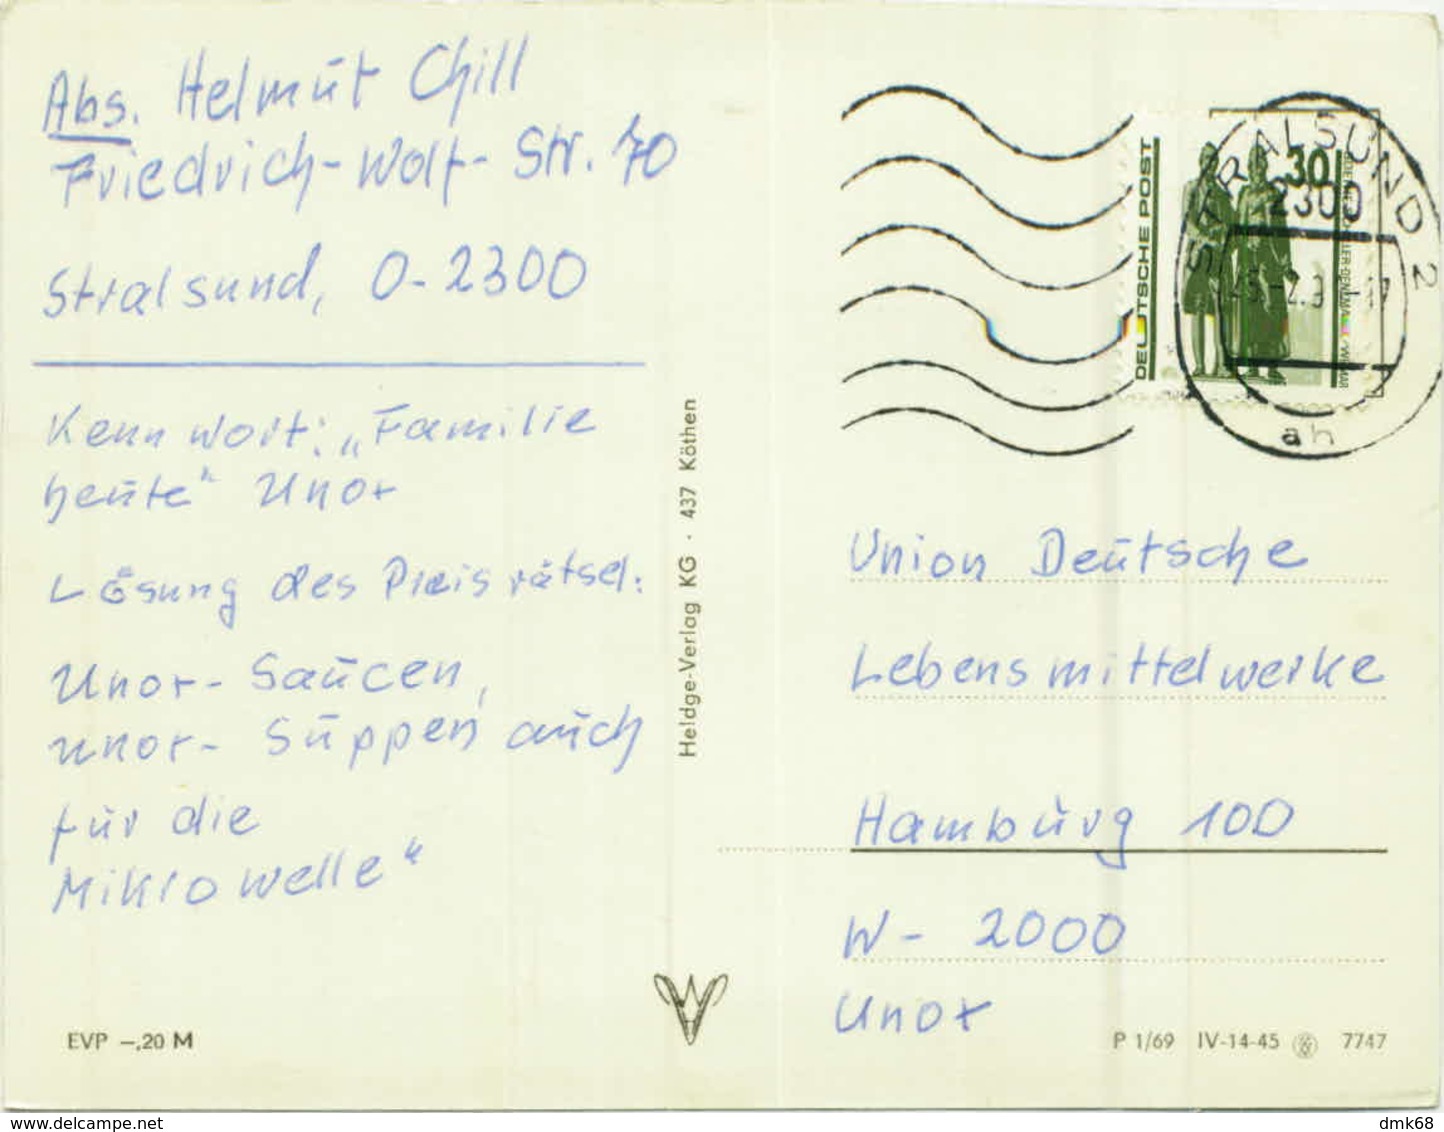 Abs. Helmut Chill
Friedrich-Wolf-Str. 70
Stralsund, O-2300
Kennwort: „Familie
heute“ Unox
Lösung des Preisrätsel:
Unox-Saucen,
Unox-Suppen auch
für die
Mikrowelle“
EVP —,20 M
Heldge-Verlag KG · 437 Köthen
STRALSUND 2
2300
ah
DEUTSCHE POST
30
Union Deutsche
Lebensmittelwerke
Hamburg 100
W- 2000
Unox
P 1/69 IV-14-45 7747
www.delcampe.net
dmk68